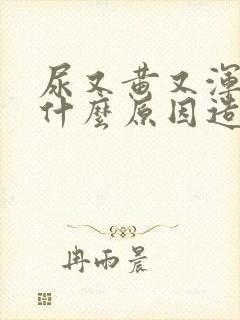 尿又黄又渾
什麼原因造
冉雨晨